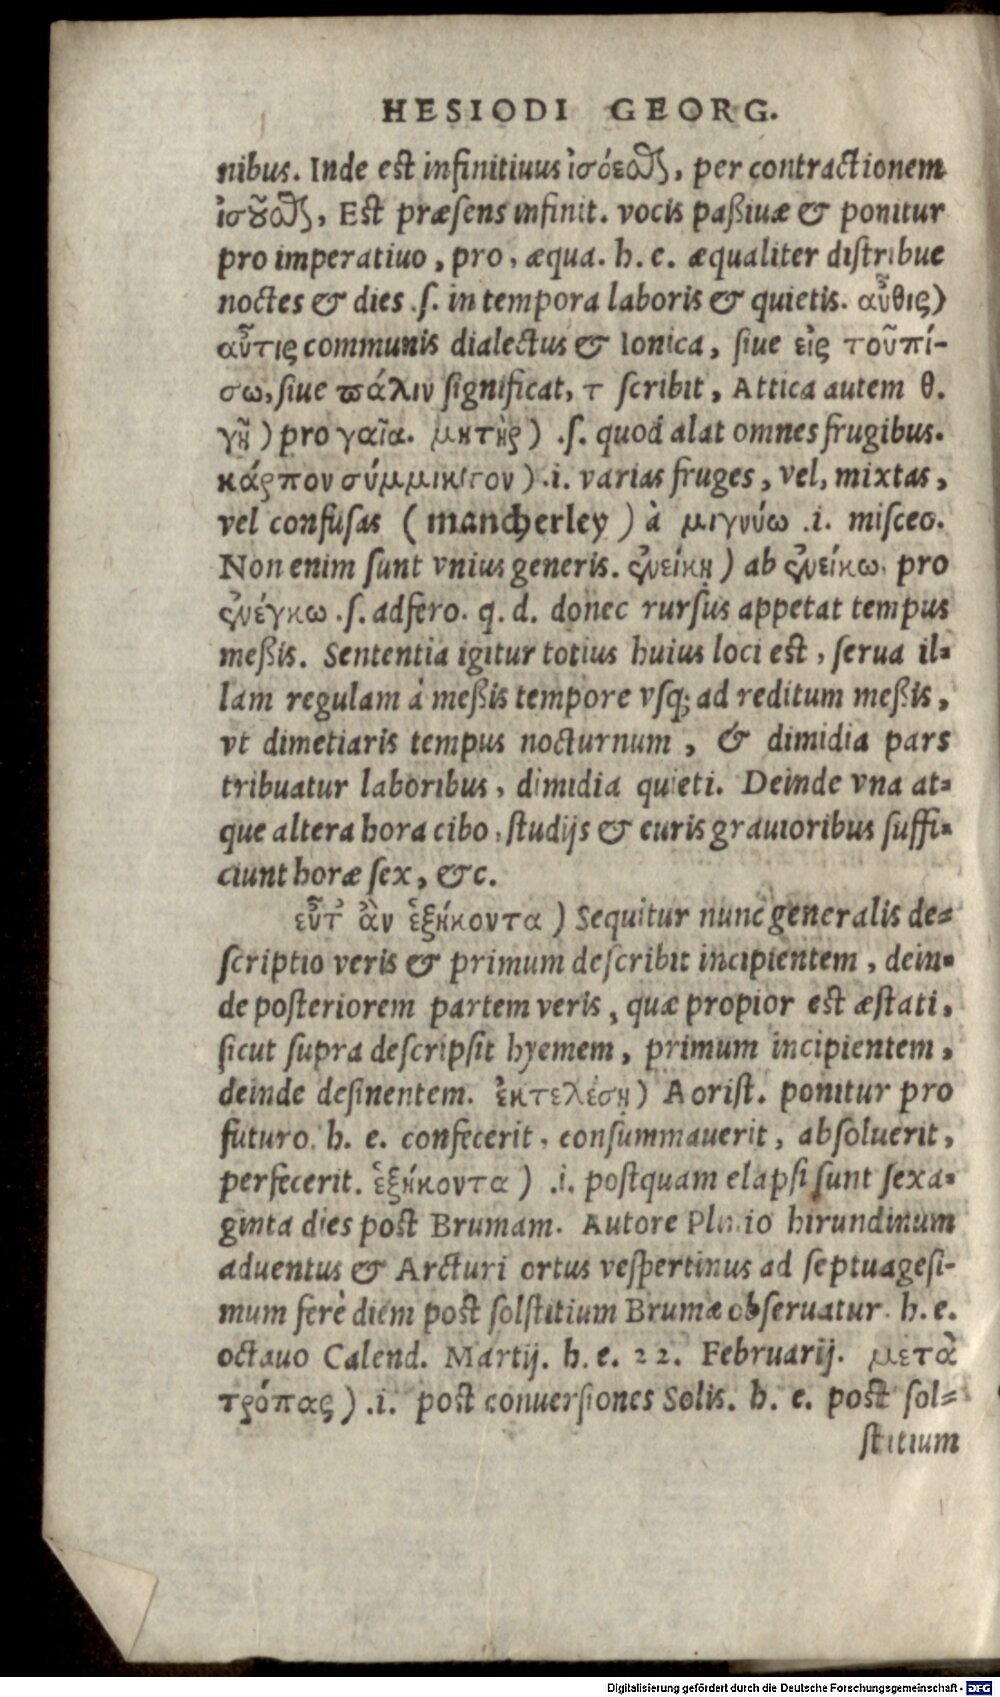 HESIODI GEORG.
nibus. Inde est infinitiuus ἰσόεσθαι, per contractionem
ἰσοῦσθαι, Est præsens infinit. vocis paßiuæ & ponitur
pro imperatiuo, pro, æqua. h. e. æqualiter distribue
noctes & dies .ſ. in tempora laboris & quietis. αὖθις)
αὖτις communis dialectus & Ionica, siue εἰς τοὐπί-
σω, siue πάλιν significat, τ scribit, Attica autem θ.
γῆ) pro γαῖα. μητὴρ) .ſ. quod alat omnes frugibus.
κάρπον σύμμικτον) .i. varias fruges, vel, mixtas,
vel confusas (mancherley) à μιγνύω .i. misceo.
Non enim sunt vnius generis. ἐνείκῃ) ab ἐνείκω, pro
ἐνέγκω .ſ. adfero. q. d. donec rursus appetat tempus
meßis. Sententia igitur totius huius loci est, serua il=
lam regulam à meßis tempore vsq; ad reditum meßis,
vt dimetiaris tempus nocturnum, & dimidia pars
tribuatur laboribus, dimidia quieti. Deinde vna at=
que altera hora cibo, studijs & curis grauioribus suffi=
ciunt horæ sex, &c.
εὖτ' ἂν ἑξήκοντα) Sequitur nunc generalis de=
scriptio veris & primum describit incipientem, dein=
de posteriorem partem veris, quæ propior est æstati,
sicut supra descripsit hyemem, primum incipientem,
deinde desinentem. ἐκτελέσῃ) Aorist. ponitur pro
futuro. h. e. confecerit, consummauerit, absoluerit,
perfecerit. ἑξήκοντα) .i. postquam elapsi sunt sexa=
ginta dies post Brumam. Autore Plinio hirundinum
aduentus & Arcturi ortus vespertinus ad septuagesi-
mum ferè diem post solstitium Brumæ obseruatur. h. e.
octauo Calend. Martij. h. e. 22. Februarij. μετὰ
τρόπας) .i. post conuersiones Solis. h. e. post sol=
stitium
Digitalisierung gefördert durch die Deutsche Forschungsgemeinschaft - DFG